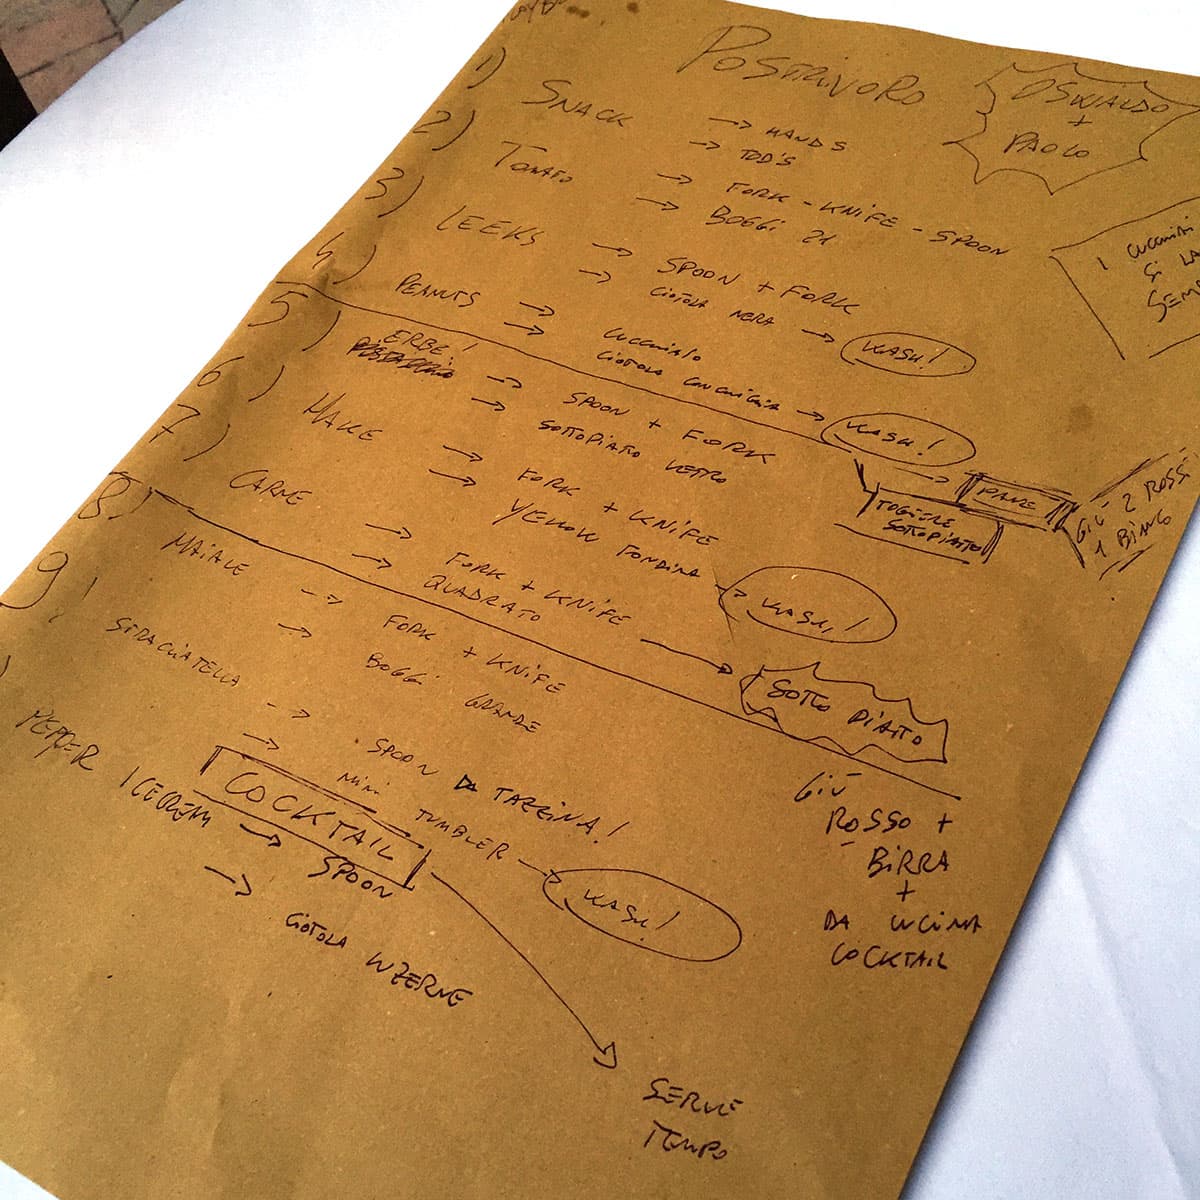 POSTRIVORO
OSWALDO
+
PAOLO
1) SNACK → HANDS
→ TOD'S
2) TOMATO → FORK - KNIFE - SPOON
→ BOGGI 21
3) LEEKS → SPOON + FORK
→ CIOTOLA NERA → WASH!
4) PEANUTS → CUCCHIAIO
→ CIOTOLA CONCHIGLIA → WASH!
5) ERBE! → SPOON + FORK
→ SOTTOPIATTO VETRO
→ PANE
TOGLIERE
SOTTOPIATTO
GIÙ 2 ROSSI
1 BIANCO
6) → FORK + KNIFE
→ YELLOW FONDINA → WASH!
7) CARNE → FORK + KNIFE
→ QUADRATO → SOTTO PIATTO
8) MAIALE → FORK + KNIFE
→ BOGGI GRANDE
9) STRACIATELLA → SPOON DA TAZZINA!
→ MINI TUMBLER → WASH!
COCKTAIL
PEPPER ICECREAM → SPOON
→ CIOTOLA
GIÙ
ROSSO +
BIRRA
+
DA CUCINA
COCKTAIL
SERVE
TEMPO
I
SI LA
SEMP